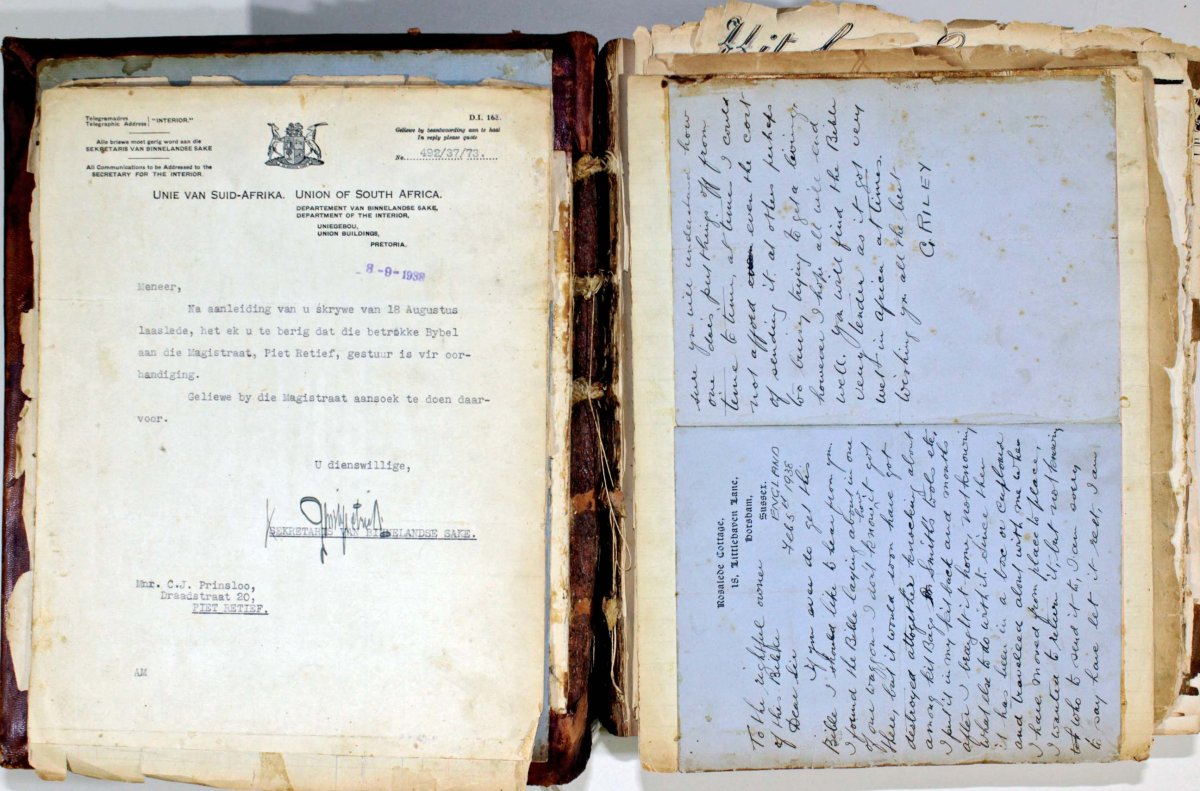 Telegramadres
Telegraphic Address
"INTERIOR."
Alle briewe moet gerig word aan die
SEKRETARIS VAN BINNELANDSE SAKE
All Communications to be Addressed to the
SECRETARY FOR THE INTERIOR.
D.I. 163.
Geliewe by beantwoording aan te haal
In reply please quote
No. 492/37/73.
UNIE VAN SUID-AFRIKA. UNION OF SOUTH AFRICA.
DEPARTEMENT VAN BINNELANDSE SAKE,
DEPARTMENT OF THE INTERIOR,
UNIEGEBOU,
UNION BUILDINGS,
PRETORIA.
-8-9-1938
Meneer,
Na aanleiding van u skrywe van 18 Augustus
laaslede, het ek u te berig dat die betrokke Bybel
aan die Magistraat, Piet Retief, gestuur is vir oor-
handiging.
Geliewe by die Magistraat aansoek te doen daar-
voor.
U dienswillige,
SEKRETARIS VAN BINNELANDSE SAKE.
Mnr. C.J. Prinsloo,
Draadstraat 20,
PIET RETIEF.
AM
Rosalede Cottage,
18, Littlehaven Lane,
Horsham,
Sussex.
ENGLAND
Feb 5th 1938
To the rightful owner
of the Bible
Dear Sir
If you ever do get this
Bible I should like to hear from you
I found the Bible laying about in one
of our waggons I don't know how it got
there, but it would soon have got
destroyed altogether knocking about
among kit Bags Smiths tools etc,
I put it in my kit back and months
after I brought it home, not knowing
what else to do with it, since then
it has been in a box or cupboard
and travelled about with me when
I have moved from place to place,
I wanted to return it, but not knowing
who to send it to, I am sorry
to say have let it rest. I am
sure you will understand how
one does put things off from
time to time, at times I could
not afford even the cost
of sending it at others perhaps
too busy trying to get a living
however I hope all will end
well. You will find the Bible
very tender as it got very
wet in Africa at times.
Wishing you all the best
G RILEY